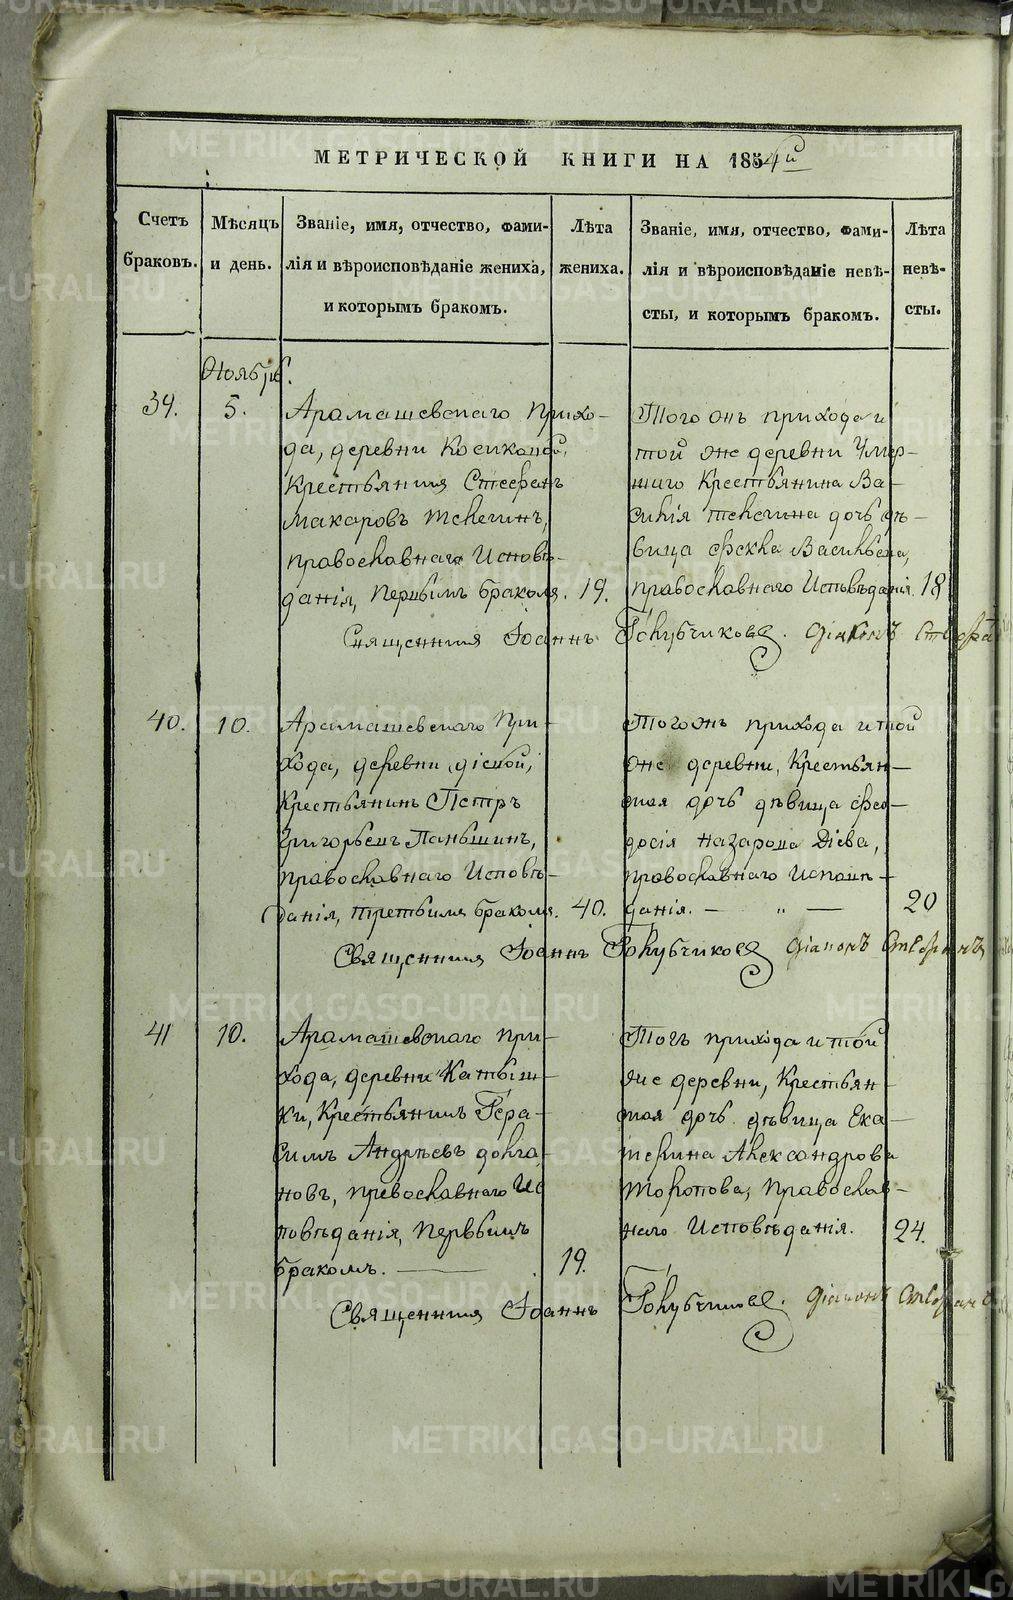 МЕТРИЧЕСКОЙ КНИГИ НА 1854й
Счетъ браковъ.
Мѣсяцъ и день.
Званіе, имя, отчество, фами-
лія и вѣроисповѣданіе жениха,
и которымъ бракомъ.
Лѣта жениха.
Званіе, имя, отчество, фами-
лія и вѣроисповѣданіе невѣ-
сты, и которымъ бракомъ.
Лѣта невѣ-
сты.
Ноябрь.
39.
5.
Арамашевскаго Прихо-
да, деревни
Крестьянинъ Стефанъ
Макаровъ
православнаго Исповѣ-
данія, первымъ бракомъ.
19.
Того жъ прихода и
той же деревни Умер-
шаго Крестьянина Ва-
силія дочь дѣ-
вица Фекла Васильева,
православнаго Исповѣданія.
18
Священникъ Іоаннъ Голубчиковъ. Діаконъ
40.
10.
Арамашевскаго При-
хода, деревни
Крестьянинъ Петръ
Григорьевъ Паньшинъ,
православнаго Исповѣ-
данія, третьимъ бракомъ.
40.
Того жъ прихода и той
же деревни, Крестьян-
ская дочь дѣвица Фео-
досія Назарова Діева,
православнаго Исповѣ-
данія. — „ —
20
Священникъ Іоаннъ Голубчиковъ Діаконъ
41
10.
Арамашевскаго При-
хода, деревни Катыш-
ки, Крестьянинъ Гера-
симъ Андрѣевъ Долга-
новъ, православнаго Ис
повѣданія, Первымъ
бракомъ. —
19.
Тогъ прихода и той
же деревни, Крестьян-
ская дочь дѣвица Ека-
терина Александрова
Торопова, Православ-
наго Исповѣданія.
24.
Священникъ Іоаннъ Голубчиковъ. Діаконъ
METRIKI.GASO-URAL.RU